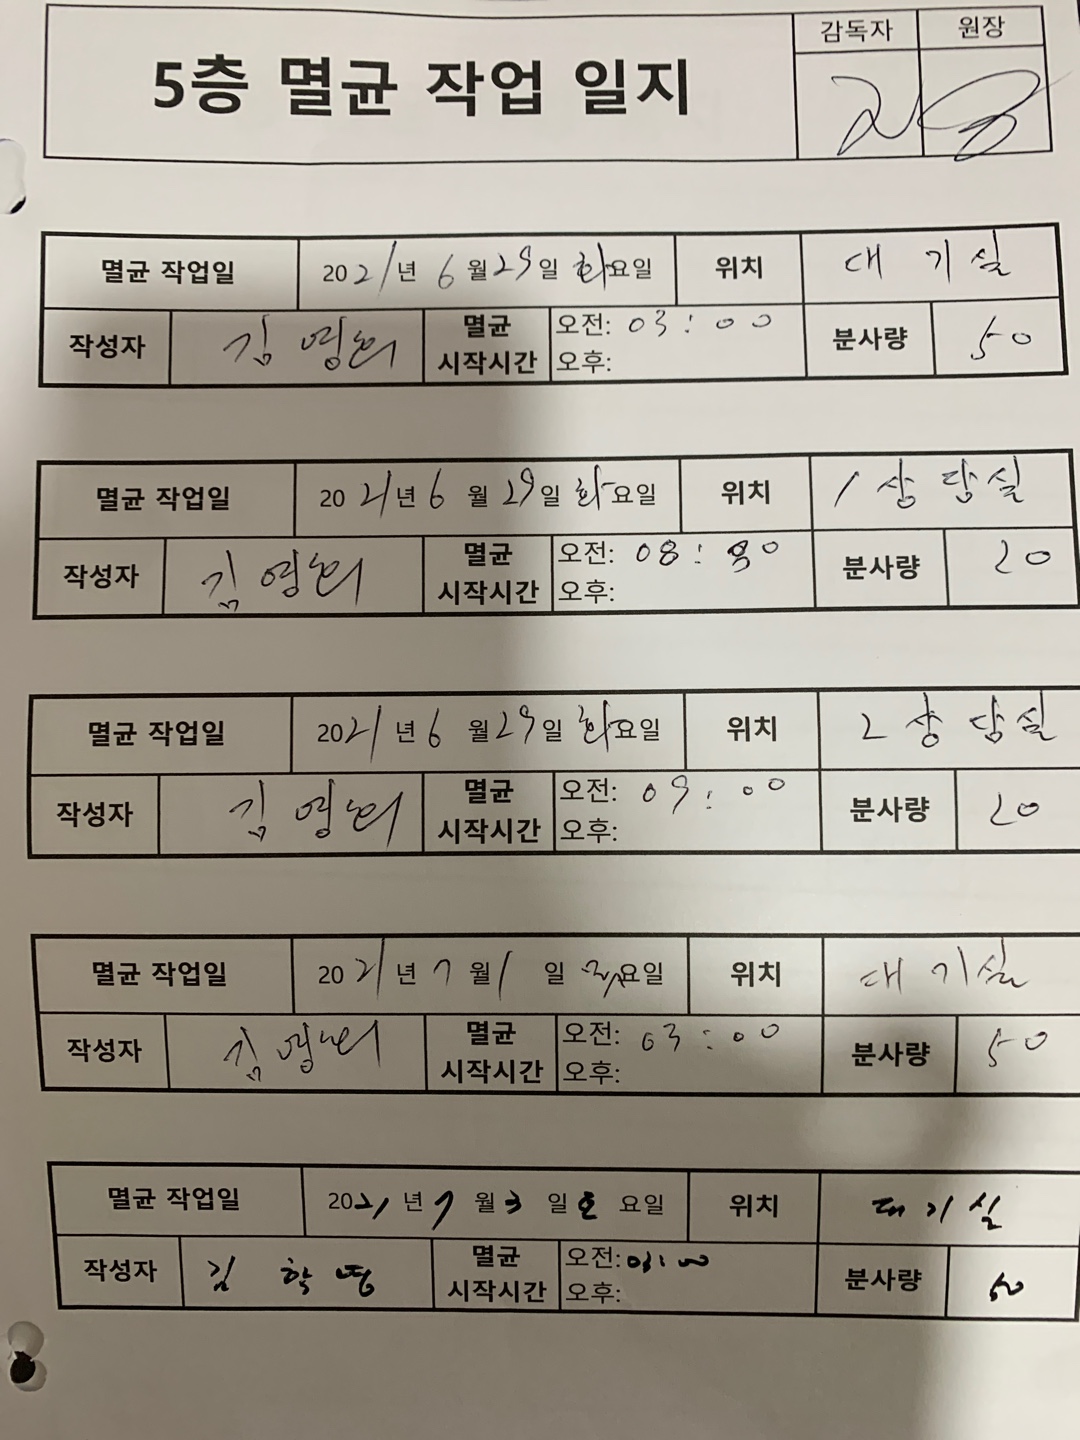 감독자 원장
5층 멸균 작업 일지
멸균 작업일 2021년 6월 29일 화요일 위치 대기실
작성자 김영희 멸균 시작시간 오전: 03:00 오후: 분사량 50
멸균 작업일 2021년 6월 29일 화요일 위치 1상담실
작성자 김영희 멸균 시작시간 오전: 08: 오후: 분사량 20
멸균 작업일 2021년 6월 29일 화요일 위치 2상담실
작성자 김영희 멸균 시작시간 오전: 09:00 오후: 분사량 20
멸균 작업일 2021년 7월 1일 요일 위치 대기실
작성자 김영희 멸균 시작시간 오전: 03:00 오후: 분사량 50
멸균 작업일 2021년 7월 3일 토요일 위치 대기실
작성자 김학영 멸균 시작시간 오전: 03:00 오후: 분사량 50